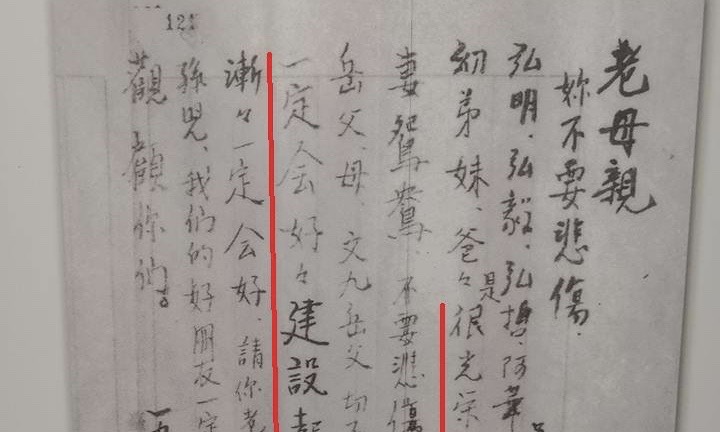 121
老母親
妳不要悲傷.
弘明、弘毅、弘哲、阿華
幼弟妹、爸々是很光榮
妻鴛鴦、不要悲傷
岳父、母、文九岳父 切
一定会好々建設起
漸々一定会好、請你老
孫兒、我们的好朋友一定
觀顧你们。